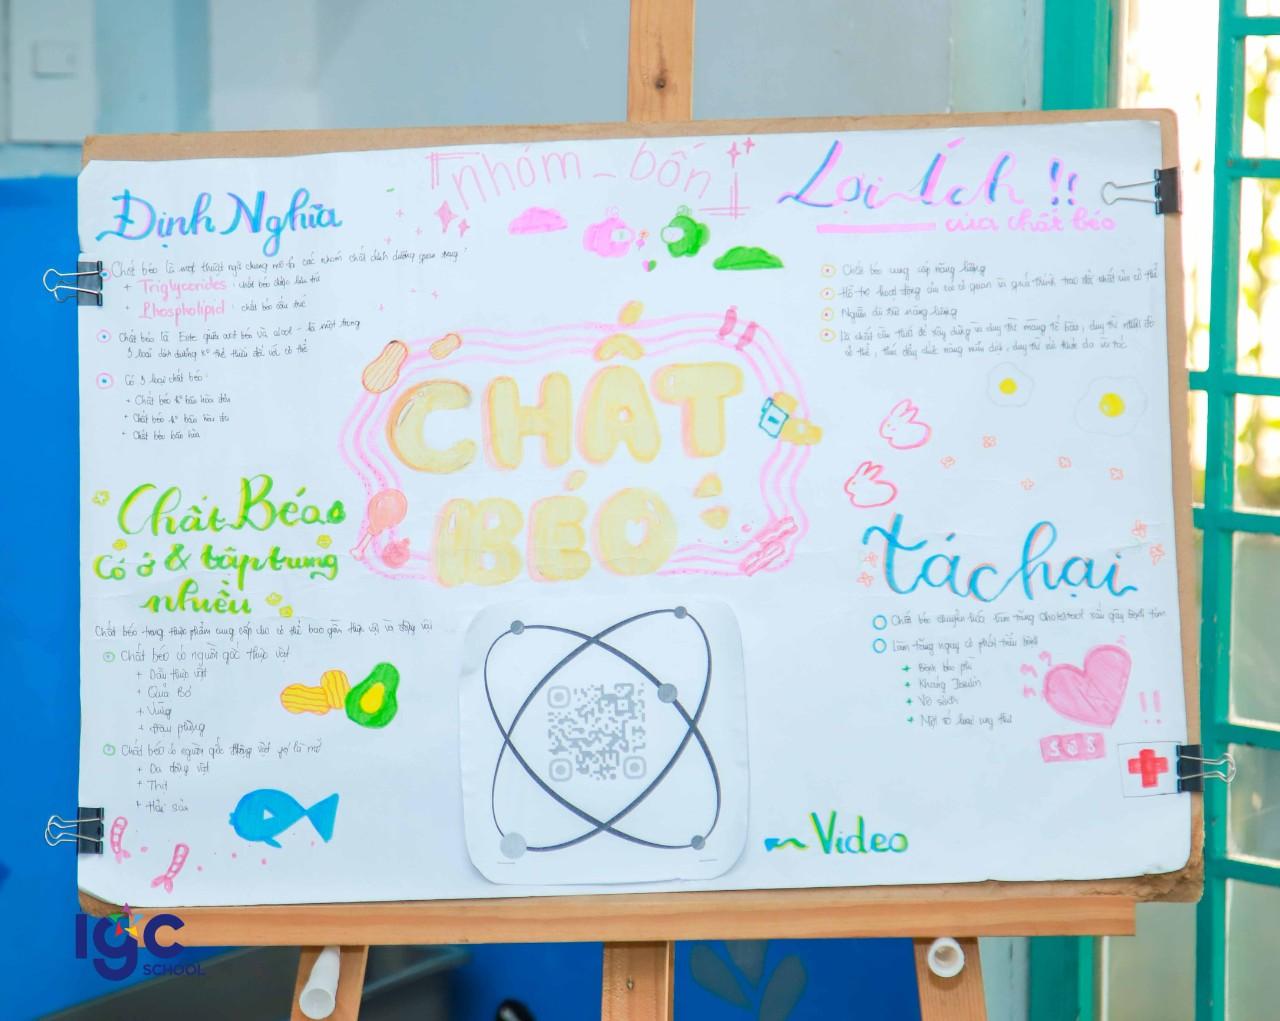 nhóm_bốn
Định Nghĩa
Chất béo là một thuật ngữ chung mô tả các nhóm chất dinh dưỡng quan trọng
+ Triglycerides : chất béo được lưu trữ
+ Phospholipid : chất béo cấu trúc
Chất béo là Este giữa axit béo và alcol - là một trong
3 loại dinh dưỡng ko thể thiếu đối với cơ thể
Có 3 loại chất béo:
+ Chất béo ko bão hòa đơn
+ Chất béo ko bão hòa đa
+ Chất béo bão hòa
Chất Béo
Có ở & tập trung
nhiều
Chất béo trong thực phẩm cung cấp cho cơ thể bao gồm thực vật và động vật
Chất béo có nguồn gốc thực vật
+ Dầu thực vật
+ Quả Bơ
+ Vừng
+ Đậu phộng
Chất béo có nguồn gốc động vật gọi là mỡ
+ Da động vật
+ Thịt
+ Hải sản
CHẤT
BÉO
Lợi Ích !!
của chất béo
Chất béo cung cấp năng lượng
Hỗ trợ hoạt động của các cơ quan và quá trình trao đổi chất của cơ thể
Nguồn dự trữ năng lượng
Là chất cần thiết để xây dựng và duy trì màng tế bào, duy trì nhiệt độ
cơ thể, thúc đẩy chức năng miễn dịch, duy trì và thức da và tóc
Tác hại
Chất béo chuyển hóa làm tăng Cholesterol xấu gây bệnh tim
Làm tăng nguy cơ phát triển bệnh
+ Bệnh béo phì
+ Kháng Insulin
+ Vô sinh
+ Một số loại ung thư
!!
SOS
Video
IGC
SCHOOL